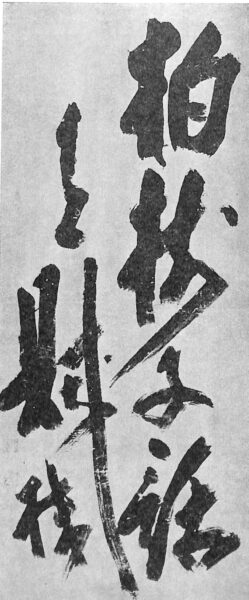 柏樹子話
有賊機